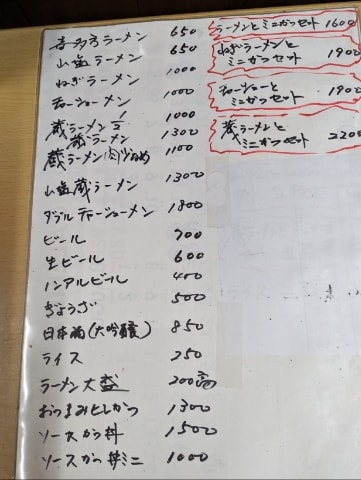 喜多方ラーメン 650
山塩ラーメン 650
ねぎラーメン 1000
チャーシューメン 1000
蔵ラーメン 1/2 1000
蔵ラーメン 1300
蔵ラーメン(肉少なめ) 1100
山塩蔵ラーメン 1300
ダブルチャーシューメン 1800
ビール 700
生ビール 600
ノンアルビール 400
ぎょうざ 500
日本酒(大吟醸) 850
ライス 250
ラーメン大盛 200高
おつまみとしかつ 1300
ソースかつ丼 1500
ソースかつ丼ミニ 1000
ラーメンとミニかつセット 1600
ねぎラーメンと
ミニかつセット 1900
チャーシューと
ミニかつセット 1900
蔵ラーメンと
ミニかつセット 2200